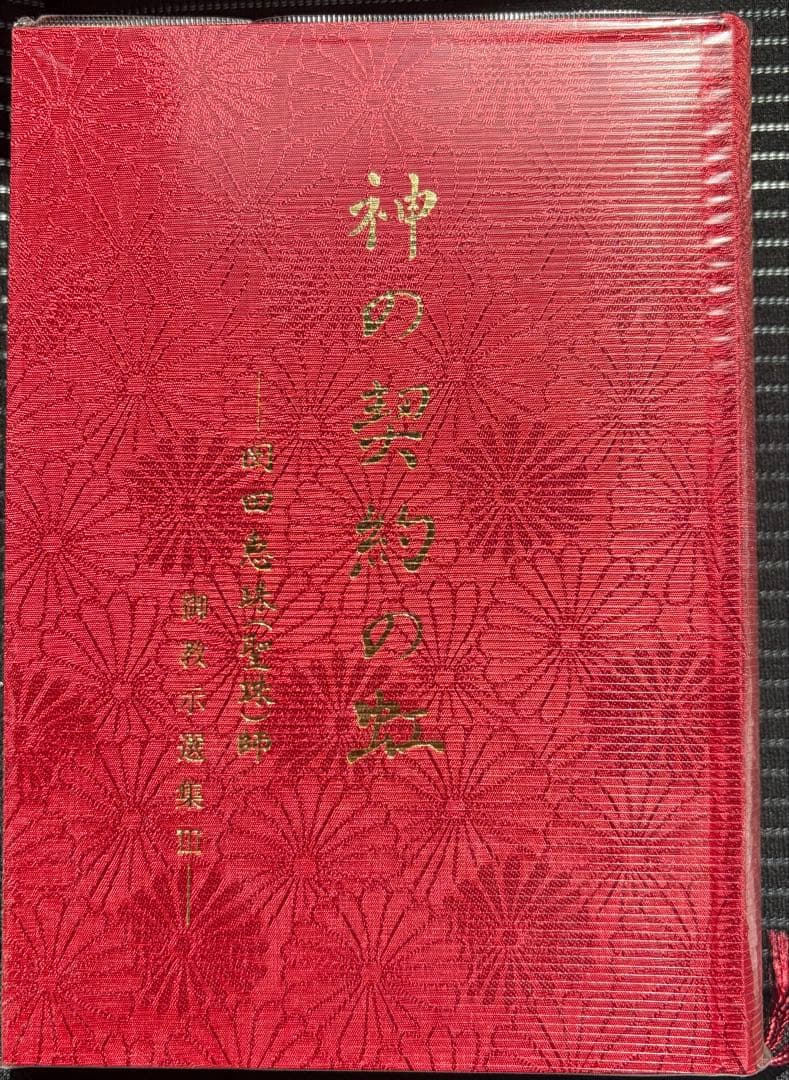 神の契約の虹
―関田恵珠(聖珠)師
御教示選集III―